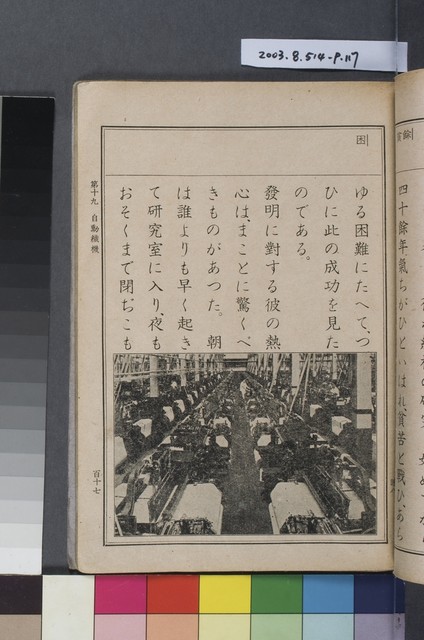 2003.8.514-P.117
四十餘年氣ちがひといはれ、貧苦と戰ひ、あら
困
ゆる困難にたへて、つ
ひに此の成功を見た
のである。
發明に對する彼の熱
心は、まことに驚くべ
きものがあつた。朝
は誰よりも早く起き
て研究室に入り、夜も
おそくまで閉ぢこも
第十九 自動織機
百十七